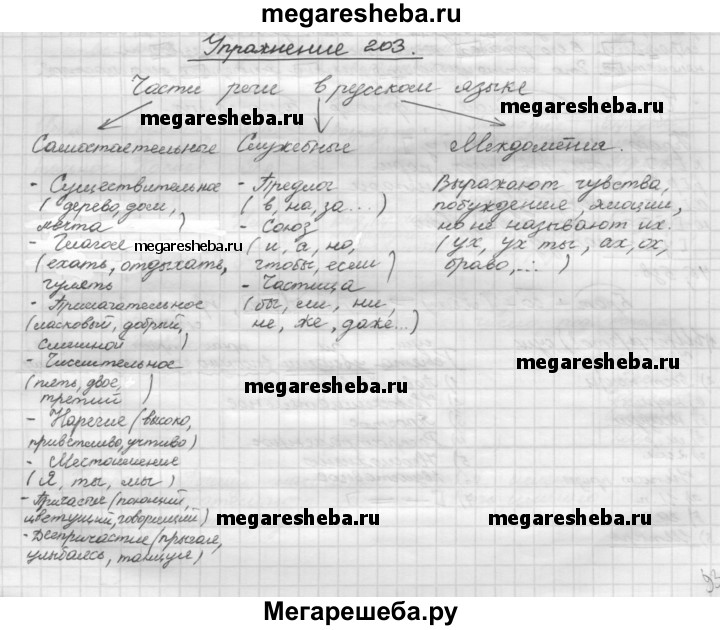 megaresheba.ru
Упражнение 203.
Части речи в русском языке
megaresheba.ru
megaresheba.ru
Самостоятельные
- Существительное
(дерево, дом,
мечта)
- Глагол
(ехать, отдыхать,
гулять
- Прилагательное
(ласковый, добрый,
смешной)
- Числительное
(пять, двое,
третий)
- Наречие (высоко,
приветливо, учтиво)
- Местоимение
(Я, ты, мы)
- Причастие (
цветущий, говорящий)
- Деепричастие (прыгая,
улыбаясь, танцуя)
Служебные
- Предлог
(в, на, за...)
- Союз
(и, а, но,
чтобы, если)
- Частица
(бы, ли, ни,
не, же, даже...)
Междометия.
Выражают чувства,
побуждение, эмоции,
но не называют их.
(ух, ух ты, ах, ох,
браво,...)
megaresheba.ru
megaresheba.ru
megaresheba.ru
megaresheba.ru
megaresheba.ru
93
Мегарешеба.ру